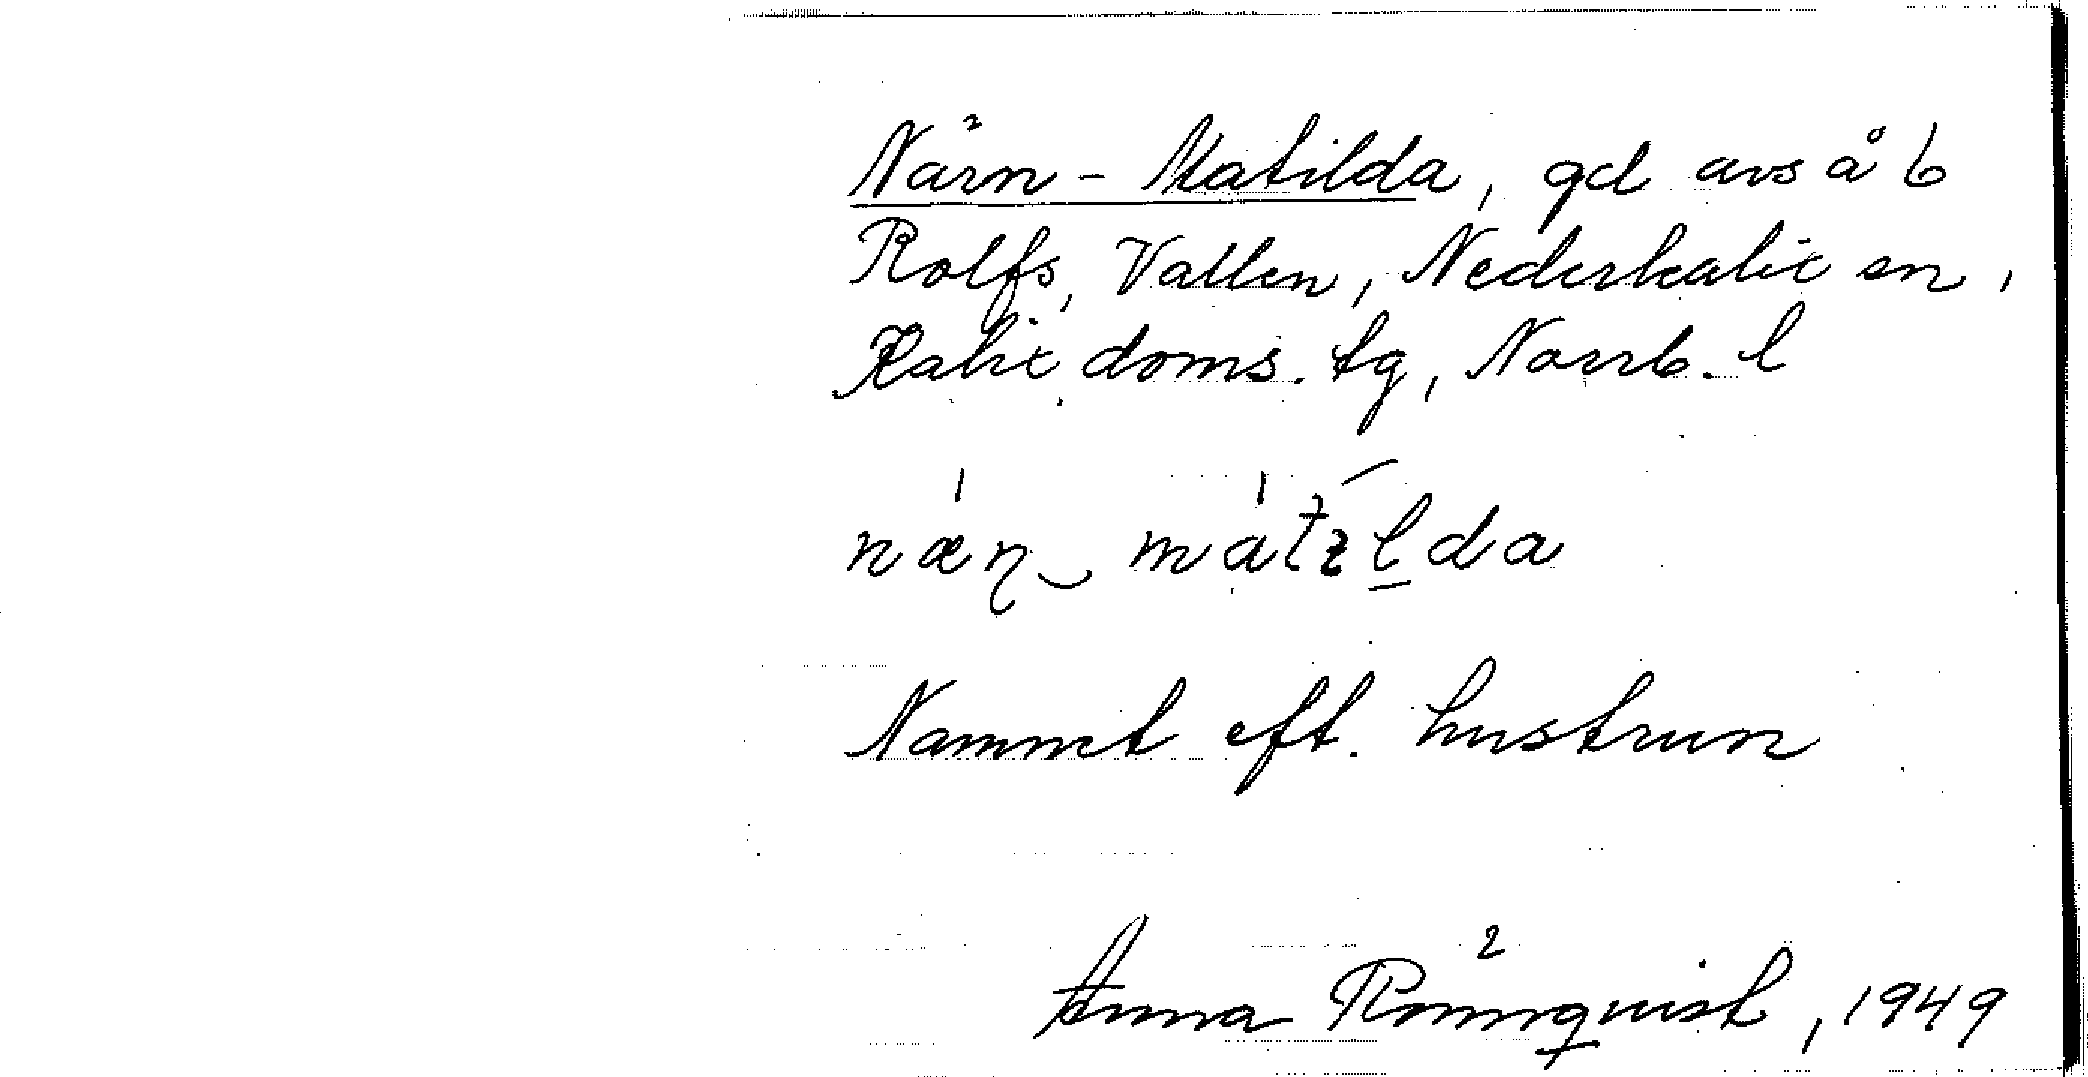 Närn-Matilda, gd avs å b
Rolfs, Vallen, Nederkalix sn,
Kalix doms. tg, Norrb. l
Namnet eft. hustrun
Anna Rönnqvist, 1949